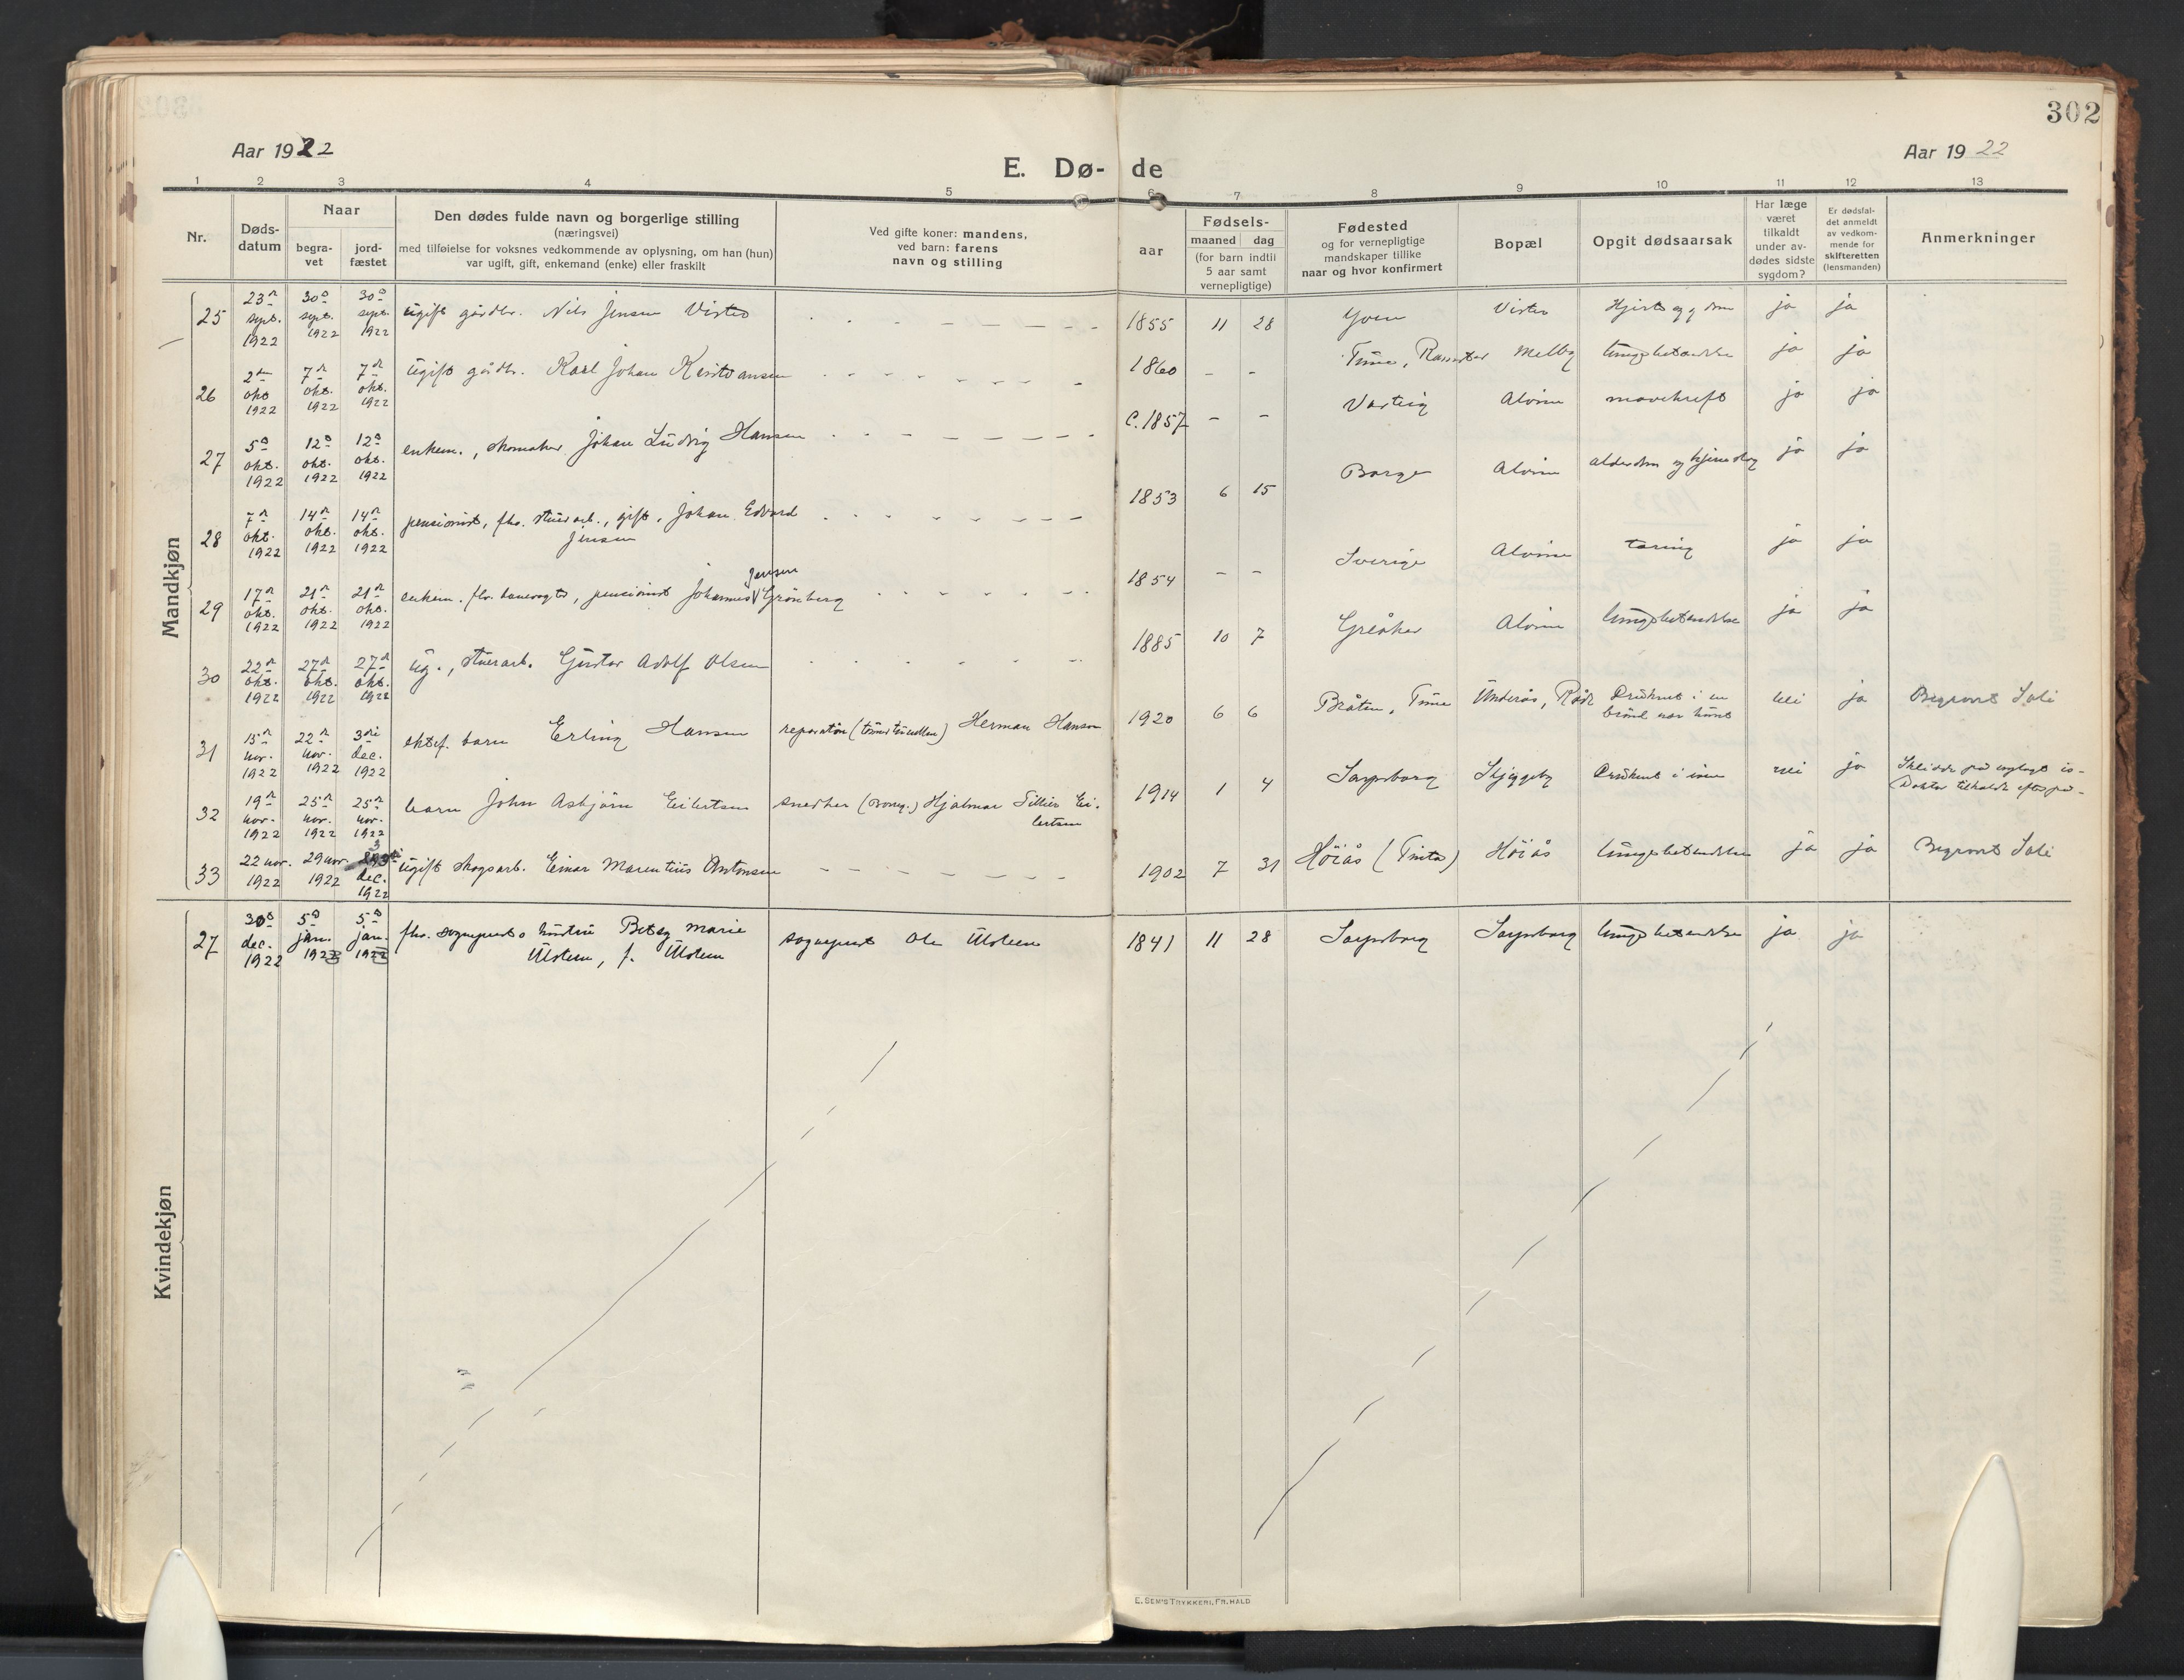 302
Aar 1922
E. Dø- de
Aar 1922
1 2 3 4 5 6 7 8 9 10 11 12 13
Nr.
Døds-
datum
Naar
begra-
vet
jord-
fæstet
Den dødes fulde navn og borgerlige stilling
(næringsvei)
med tilføielse for voksnes vedkommende av oplysning, om han (hun)
var ugift, gift, enkemand (enke) eller fraskilt
Ved gifte koner: mandens,
ved barn: farens
navn og stilling
aar
Fødsels-
maaned dag
(for barn indtil
5 aar samt
vernepligtige)
Fødested
og for vernepligtige
mandskaper tillike
naar og hvor konfirmert
Bopæl
Opgit dødsaarsak
Har læge
været
tilkaldt
under av-
dødes sidste
sygdom?
Er dødsfal-
det anmeldt
av vedkom-
mende for
skifteretten
(lensmanden)
Anmerkninger
Mandkjøn
25 23 sept. 1922 30 sept. 1922 30 sept. 1922 ugift gårdbr. Nils Jensen Visteo 1855 11 28 Visteo ja ja
26 2 okt 1922 7 okt. 1922 7 okt. 1922 ugift gårdbr. Karl Johan Kristiansen 1860 - - Tune, Melby lungebetændelse ja ja
27 5 okt. 1922 12 okt. 1922 12 okt. 1922 enkem., skomaker Johan Ludvig Hansen C. 1857 - - Varteig Alvim mavekreft ja ja
28 7 okt. 1922 14 okt. 1922 14 okt. 1922 pensionist, fhv. gift, Johan Edvard
Jensen 1853 6 15 Borge Alvim alderdom og ja ja
29 17 okt. 1922 21 okt. 1922 21 okt. 1922 enkem. fhv. banevogter, pensionist Johannes Jensen Grönberg 1854 - - Sverige Alvim tæring ja ja
30 22 okt. 1922 27 okt. 1922 27 okt. 1922 ug., Gustav Adolf Olsen 1885 10 7 Greåker Alvim lungebetændelse ja ja
31 15 nov. 1922 22 nov. 1922 3die dec. 1922 ektef. barn Erling Hansen reparatør Herman Hansen 1920 6 6 Bråten, Tune Underås, Råde Druknet i en
nei ja Begravet Soli
32 19 nov. 1922 25 nov. 1922 25 nov. 1922 barn John Asbjörn Eilertsen snedker Hjalmar Eilertsen 1914 1 4 Sarpsborg Skjeggeby Druknet i nei ja
33 22 nov. 1922 29 nov. 1922 3 dec. 1922 ugift skogsarb. Einar Marentius Antonsen 1902 7 31 Höiås (Tune) Höiås lungebetændelse ja ja Begravet Soli
Kvindekjøn
27 30 dec. 1922 5 jan. 1923 5 jan. 1923 fhv. sogneprests hustru Betsy Marie
Ulsteen, f. Ulsteen sogneprest Ole Ulsteen 1841 11 28 Sarpsborg Sarpsborg lungebetændelse ja ja
E. SEM'S TRYKKERI, FR. HALD